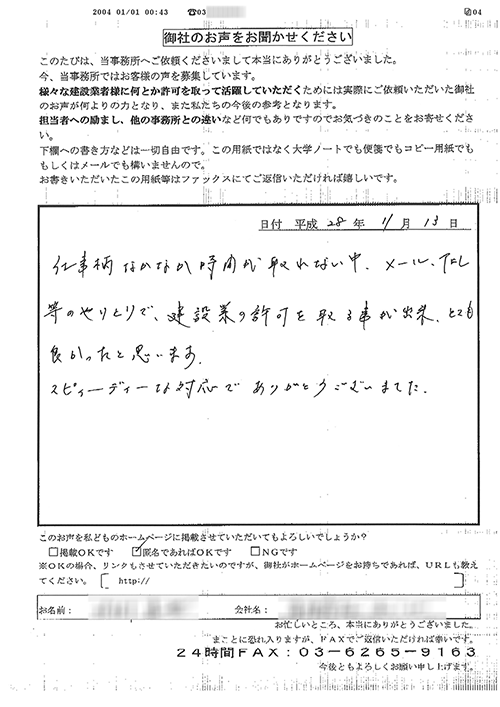 2004 01/01 00:43 ☎03 04
御社のお声をお聞かせください
このたびは、当事務所へご依頼くださいまして本当にありがとうございました。
今、当事務所ではお客様の声を募集しています。
様々な建設業者様に何とか許可を取って活躍していただくためには実際にご依頼いただいた御社
のお声が何よりの力となり、また私たちの今後の参考となります。
担当者への励まし、他の事務所との違いなど何でもありですのでお気づきのことをお寄せくださ
い。
下欄への書き方などは一切自由です。この用紙ではなく大学ノートでも便箋でもコピー用紙でも
もしくはメールでも構いませんので。
お書きいただいたこの用紙等はファックスにてご返信いただければ嬉しいです。
日付 平成 28 年 11 月 13 日
仕事柄なかなか時間が取れない中、メール、TEL
等のやりとりで、建設業の許可を取る事が出来、とても
良かったと思います。
スピィーディーな対応でありがとうございました。
このお声を私どものホームページに掲載させていただいてもよろしいでしょうか?
□掲載OKです ☑匿名であればOKです □NGです
※OKの場合、リンクもさせていただきたいのですが、御社がホームページをお持ちであれば、URLも教え
てください。[ http:// ]
お名前: 会社名:
お忙しいところ、本当にありがとうございました。
まことに恐れ入りますが、FAXでご返信いただければ幸いです。
24時間FAX:03-6265-9163
今後ともよろしくお願い申し上げます。